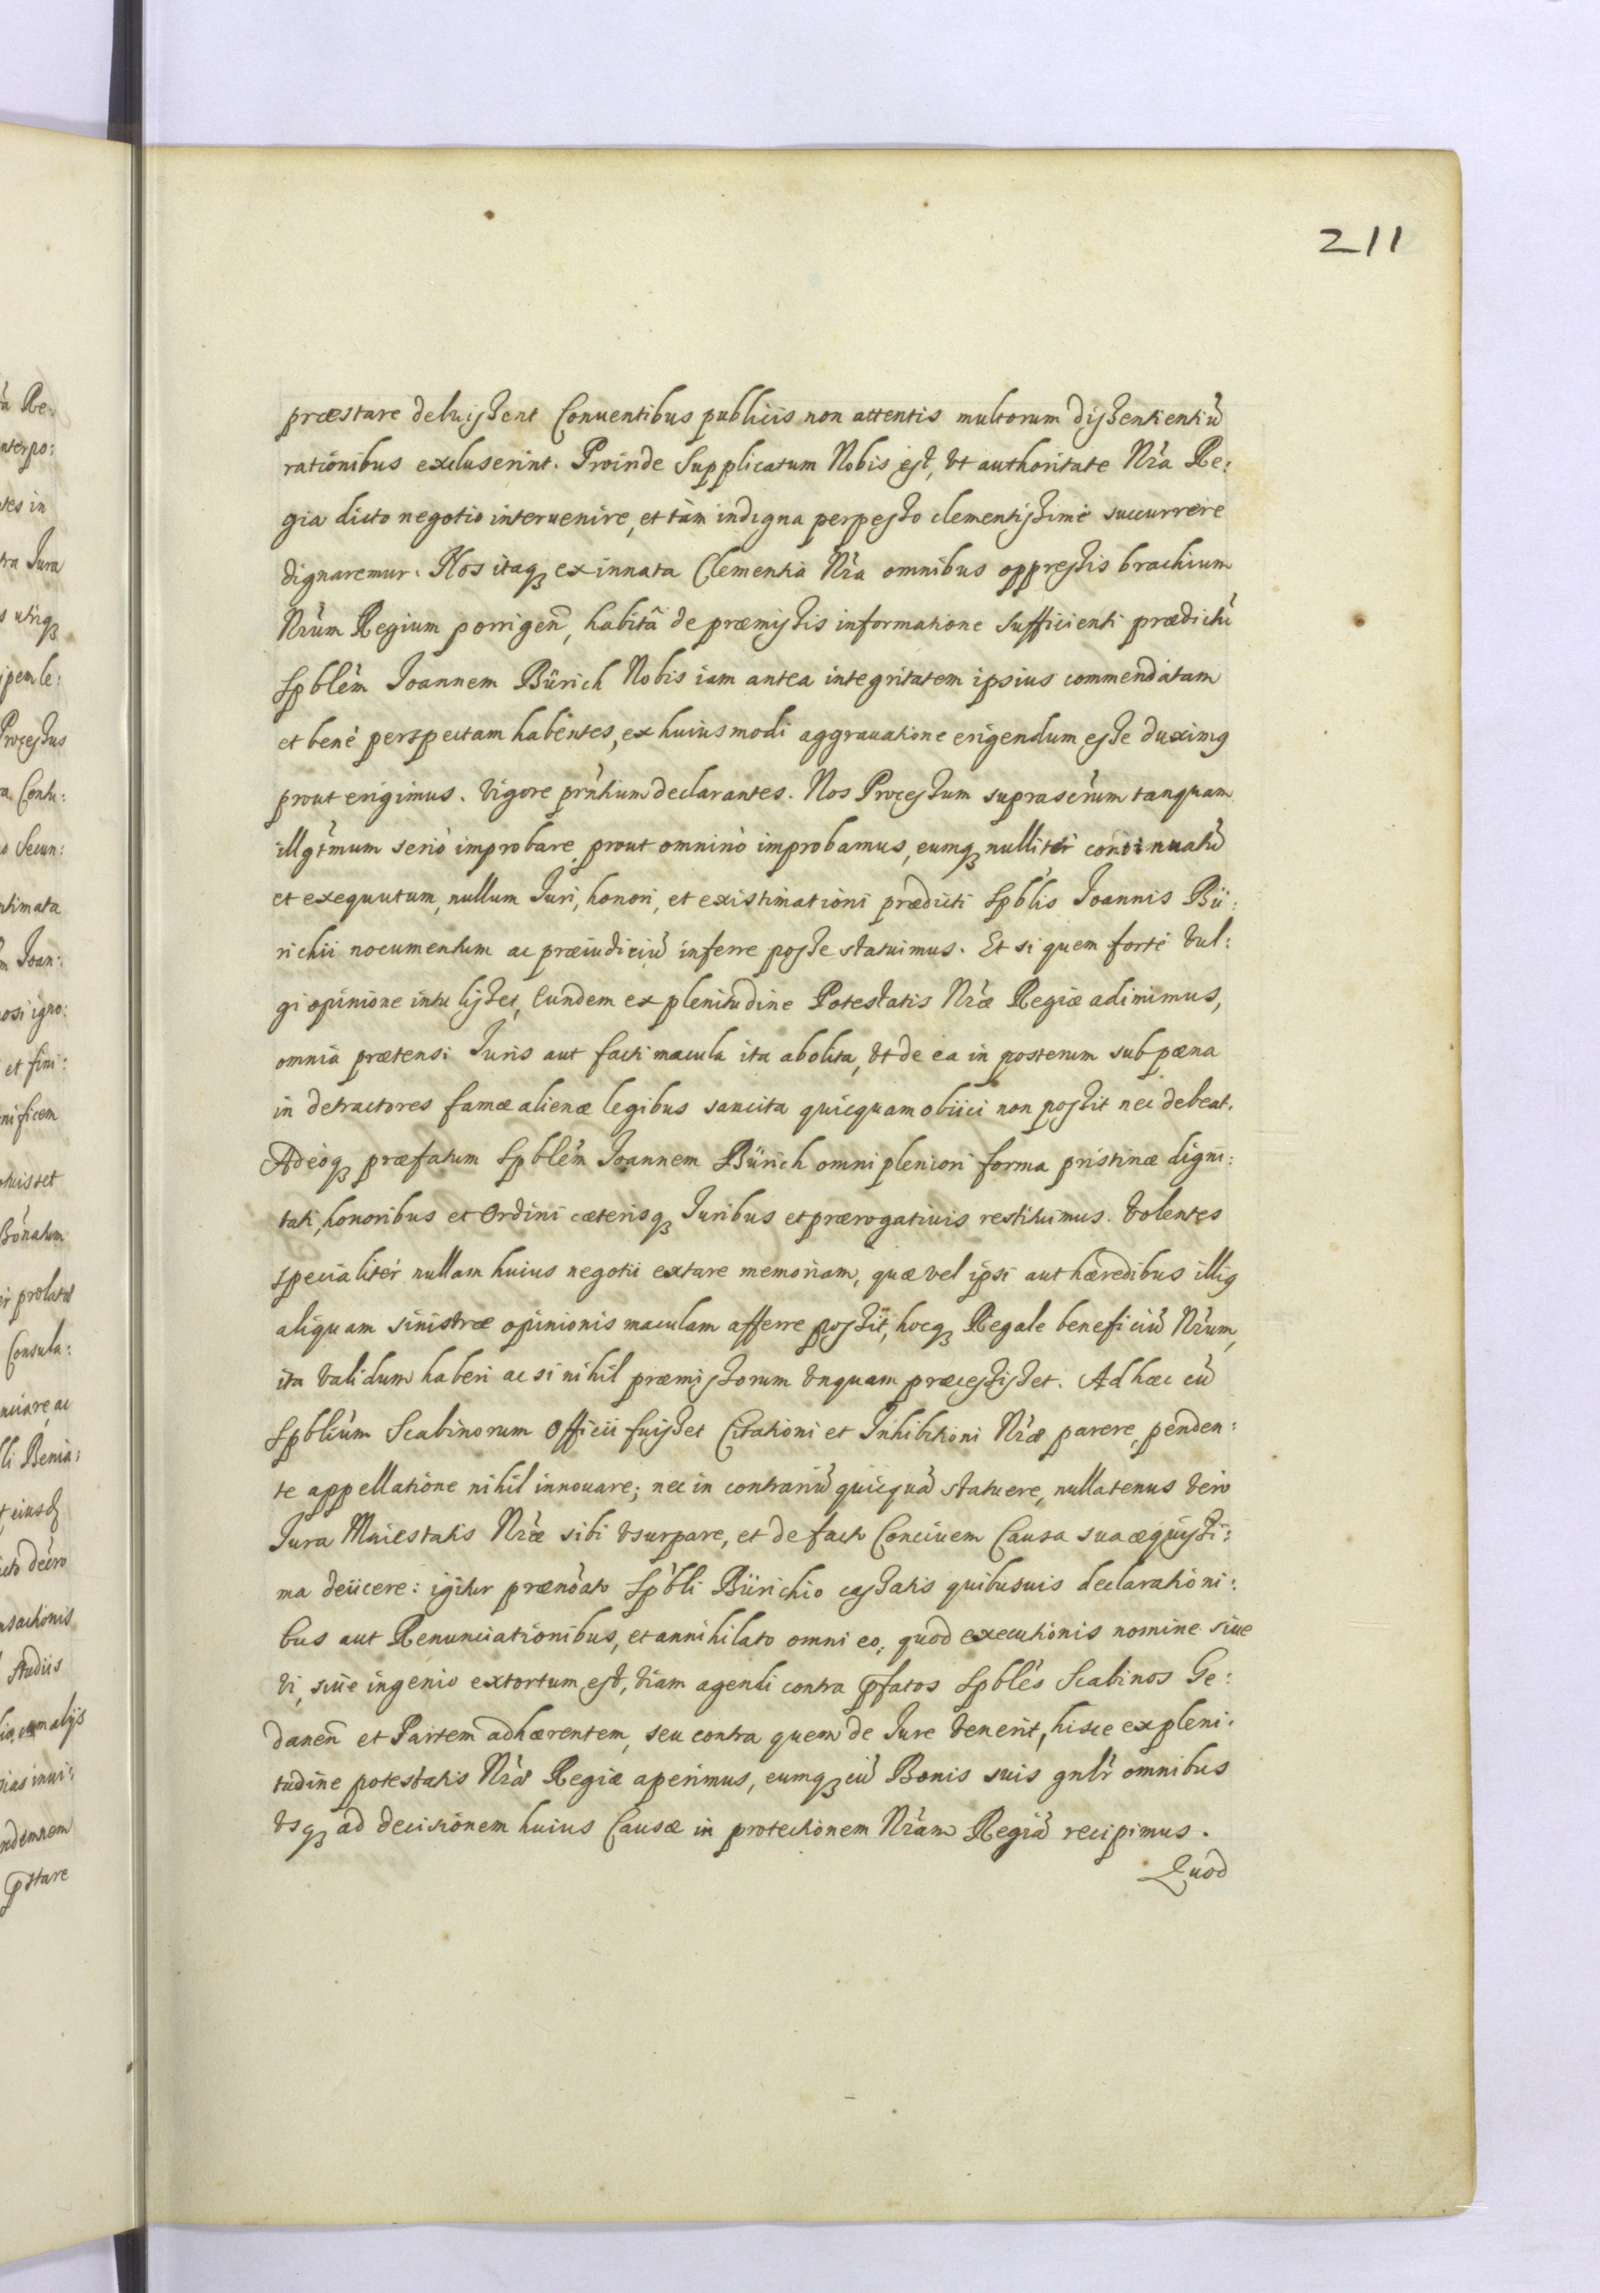 211
præstare debuissent Conuentibus publicis non attentis multorum dissentientiũ
rationibus excluserint. Proinde Supplicatum Nobis est, vt authoritate Nrã Re:
gia dicto negotio interuenire, et tàm indigna perpesso clementissimè succurrere
dignaremur. Nos itaq3 ex innata Clementia Nrã omnibus oppressis brachium
Nrũm Regium porrigeñ, habitâ de præmissis informatione sufficienti prædictũ
Spblẽm Joannem Bürich Nobis iam antea integritatem ipsius commendatam
et benè perspectam habentes, ex huiusmodi aggrauatione erigendum esse duximg
prout erigimus. Vigore prñtium declarantes. Nos Processum suprascrũm tanquam
illgtmum seriò improbare, prout omninò improbamus, eumq3 nulliter continuatũ
et exequutum, nullum Juri, honori, et existimationi prædicti Spblis Joannis Bü:
richii nocumentum ac præiudiciũ inferre posse statuimus. Et si quem fortè vul:
gi opinione intulisset, Eundem ex plenitudine Potestatis Nræ Regiæ adimimus,
omnia prætensi Juris aut facti macula ita abolita, vt de ea in posterum sub pæna
in detractores famæ alienæ legibus sancita quicquam obiici non possit nec debeat.
Adeoq3 præfatum Spblẽm Joannem Bürich omni pleniori forma pristinæ digni:
tati, honoribus et Ordini cæterisq3 Juribus et prærogatiuis restituimus. Volentes
specialiter nullam huius negotii extare memoriam, quæ vel ipsi aut hæredibus illig
aliquam sinistræ opinionis maculam afferre possit, hocq3 Regale beneficiũ Nrũm,
ita validum haberi ac si nihil præmissorum vnquam præcessisset. Ad hæc cũ
Spbliũm Scabinorum Officii fuisset Citationi et Inhibitioni Nræ parere, penden:
te appellatione nihil innouare; nec in contrariũ quicquã statuere, nullatenus verò
Jura Maiestatis Nræ sibi vsurpare, et de facto Conciuem Causa sua æquissi:
ma deiicere: igitur prænõato Spbli Bürichio cassatis quibusuis declarationi:
bus aut Renunciationibus, et annihilato omni eo, quod executionis nomine siue
vi, siue ingenio extortum est, viam agendi contra pfatos Spblẽs Scabinos Ge:
daneñ et Partem adhærentem, seu contra quem de Jure venerit, hisce ex pleni:
tudine potestatis Nræ Regiæ aperimus, eumq3 cũ Bonis suis gnlr omnibus
vsq3 ad decisionem huius Causæ in protectionem Nrãm Regiã recipimus.
Quod